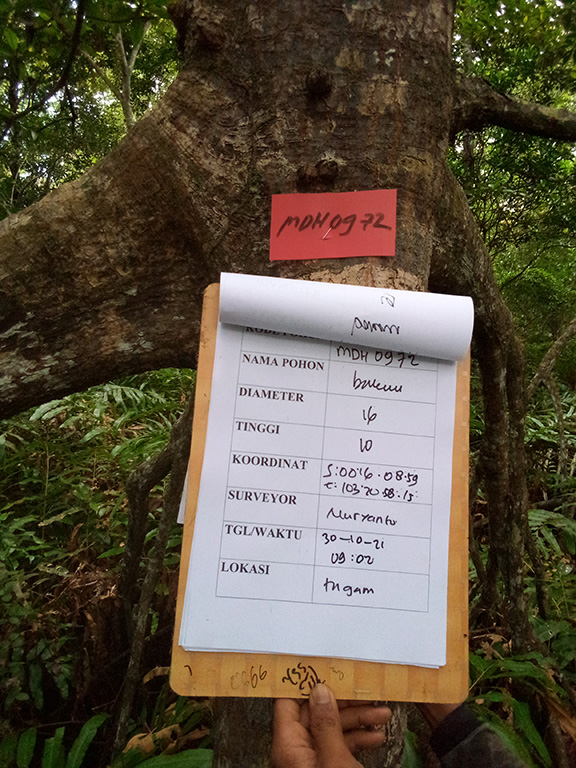 MDH 0972
KODE POHON
MDH 0972
NAMA POHON
bakau
DIAMETER
16
TINGGI
10
KOORDINAT
S:00'16.08.59
E:103'20.58.15
SURVEYOR
Nuryanto
TGL/WAKTU
30-10-21
09:02
LOKASI
tugam